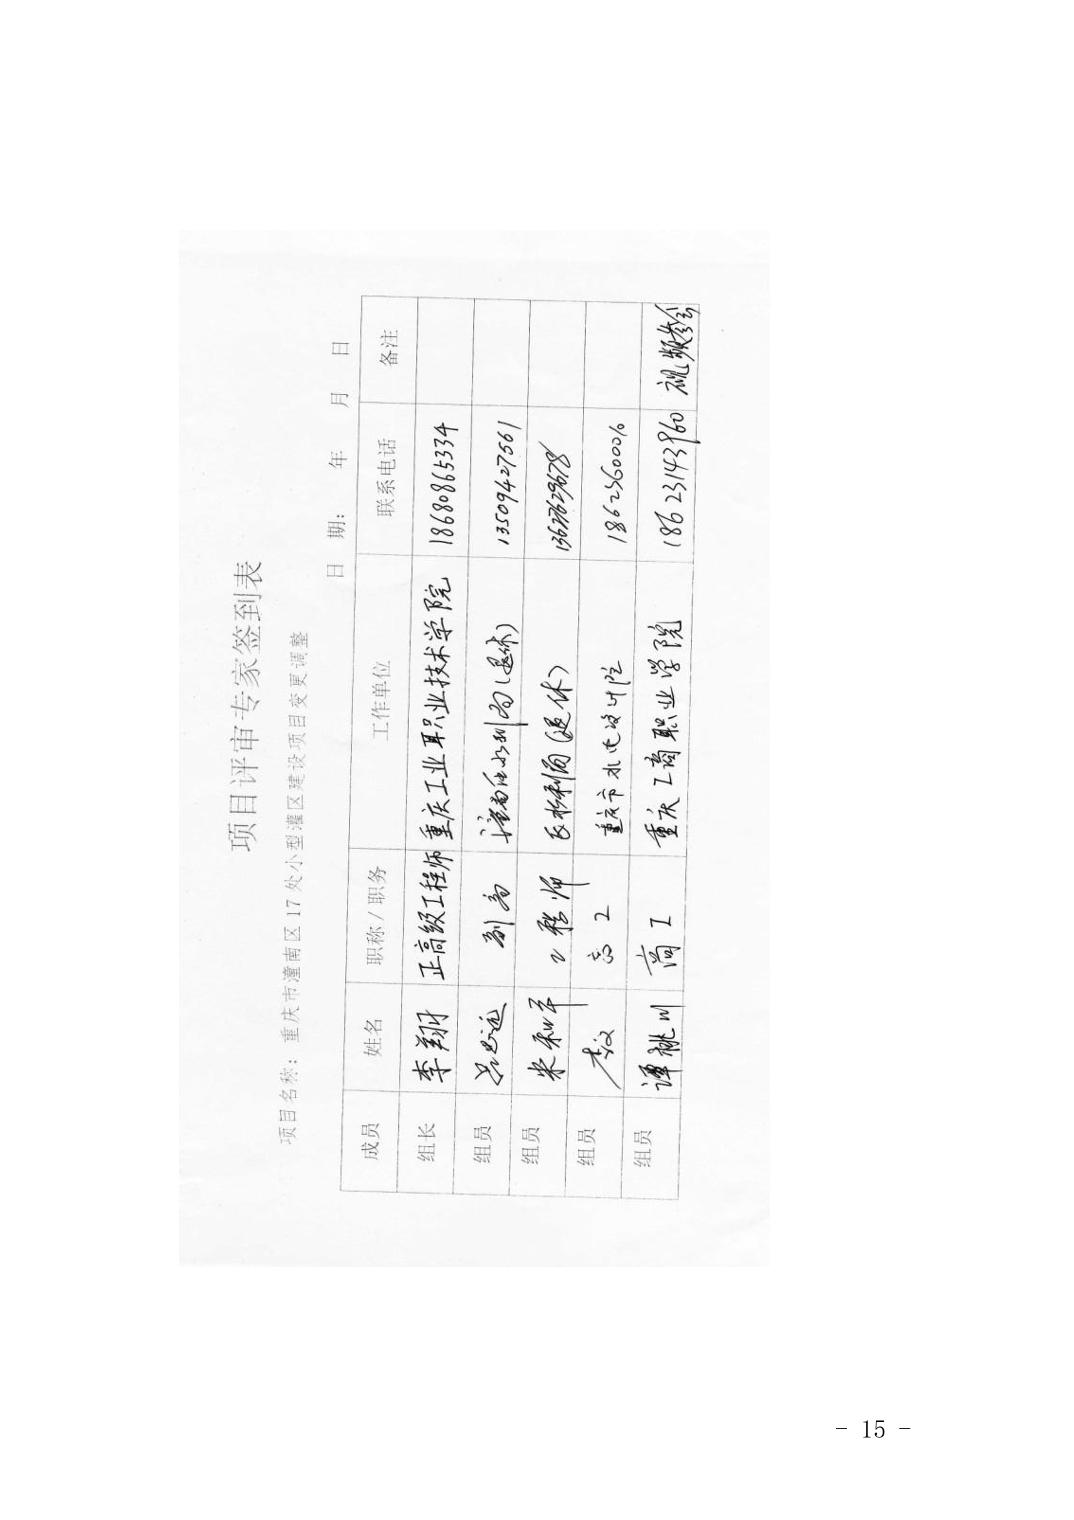 项目评审专家签到表
项目名称：重庆市潼南区17处小型灌区建设项目变更调整
日 期： 年 月 日
成员 姓名 职称/职务 工作单位 联系电话 备注
组长 李翔 正高级工程师 重庆工业职业技术学院 18680865334
组员 副高 潼南区水利局(退休) 13509427561
组员 米和平 工程师 水利局(退休)
组员 李文 高工 重庆市水电设计院
组员 谭桃川 高工 重庆工商职业学院 18623143960 视频参会
- 15 -